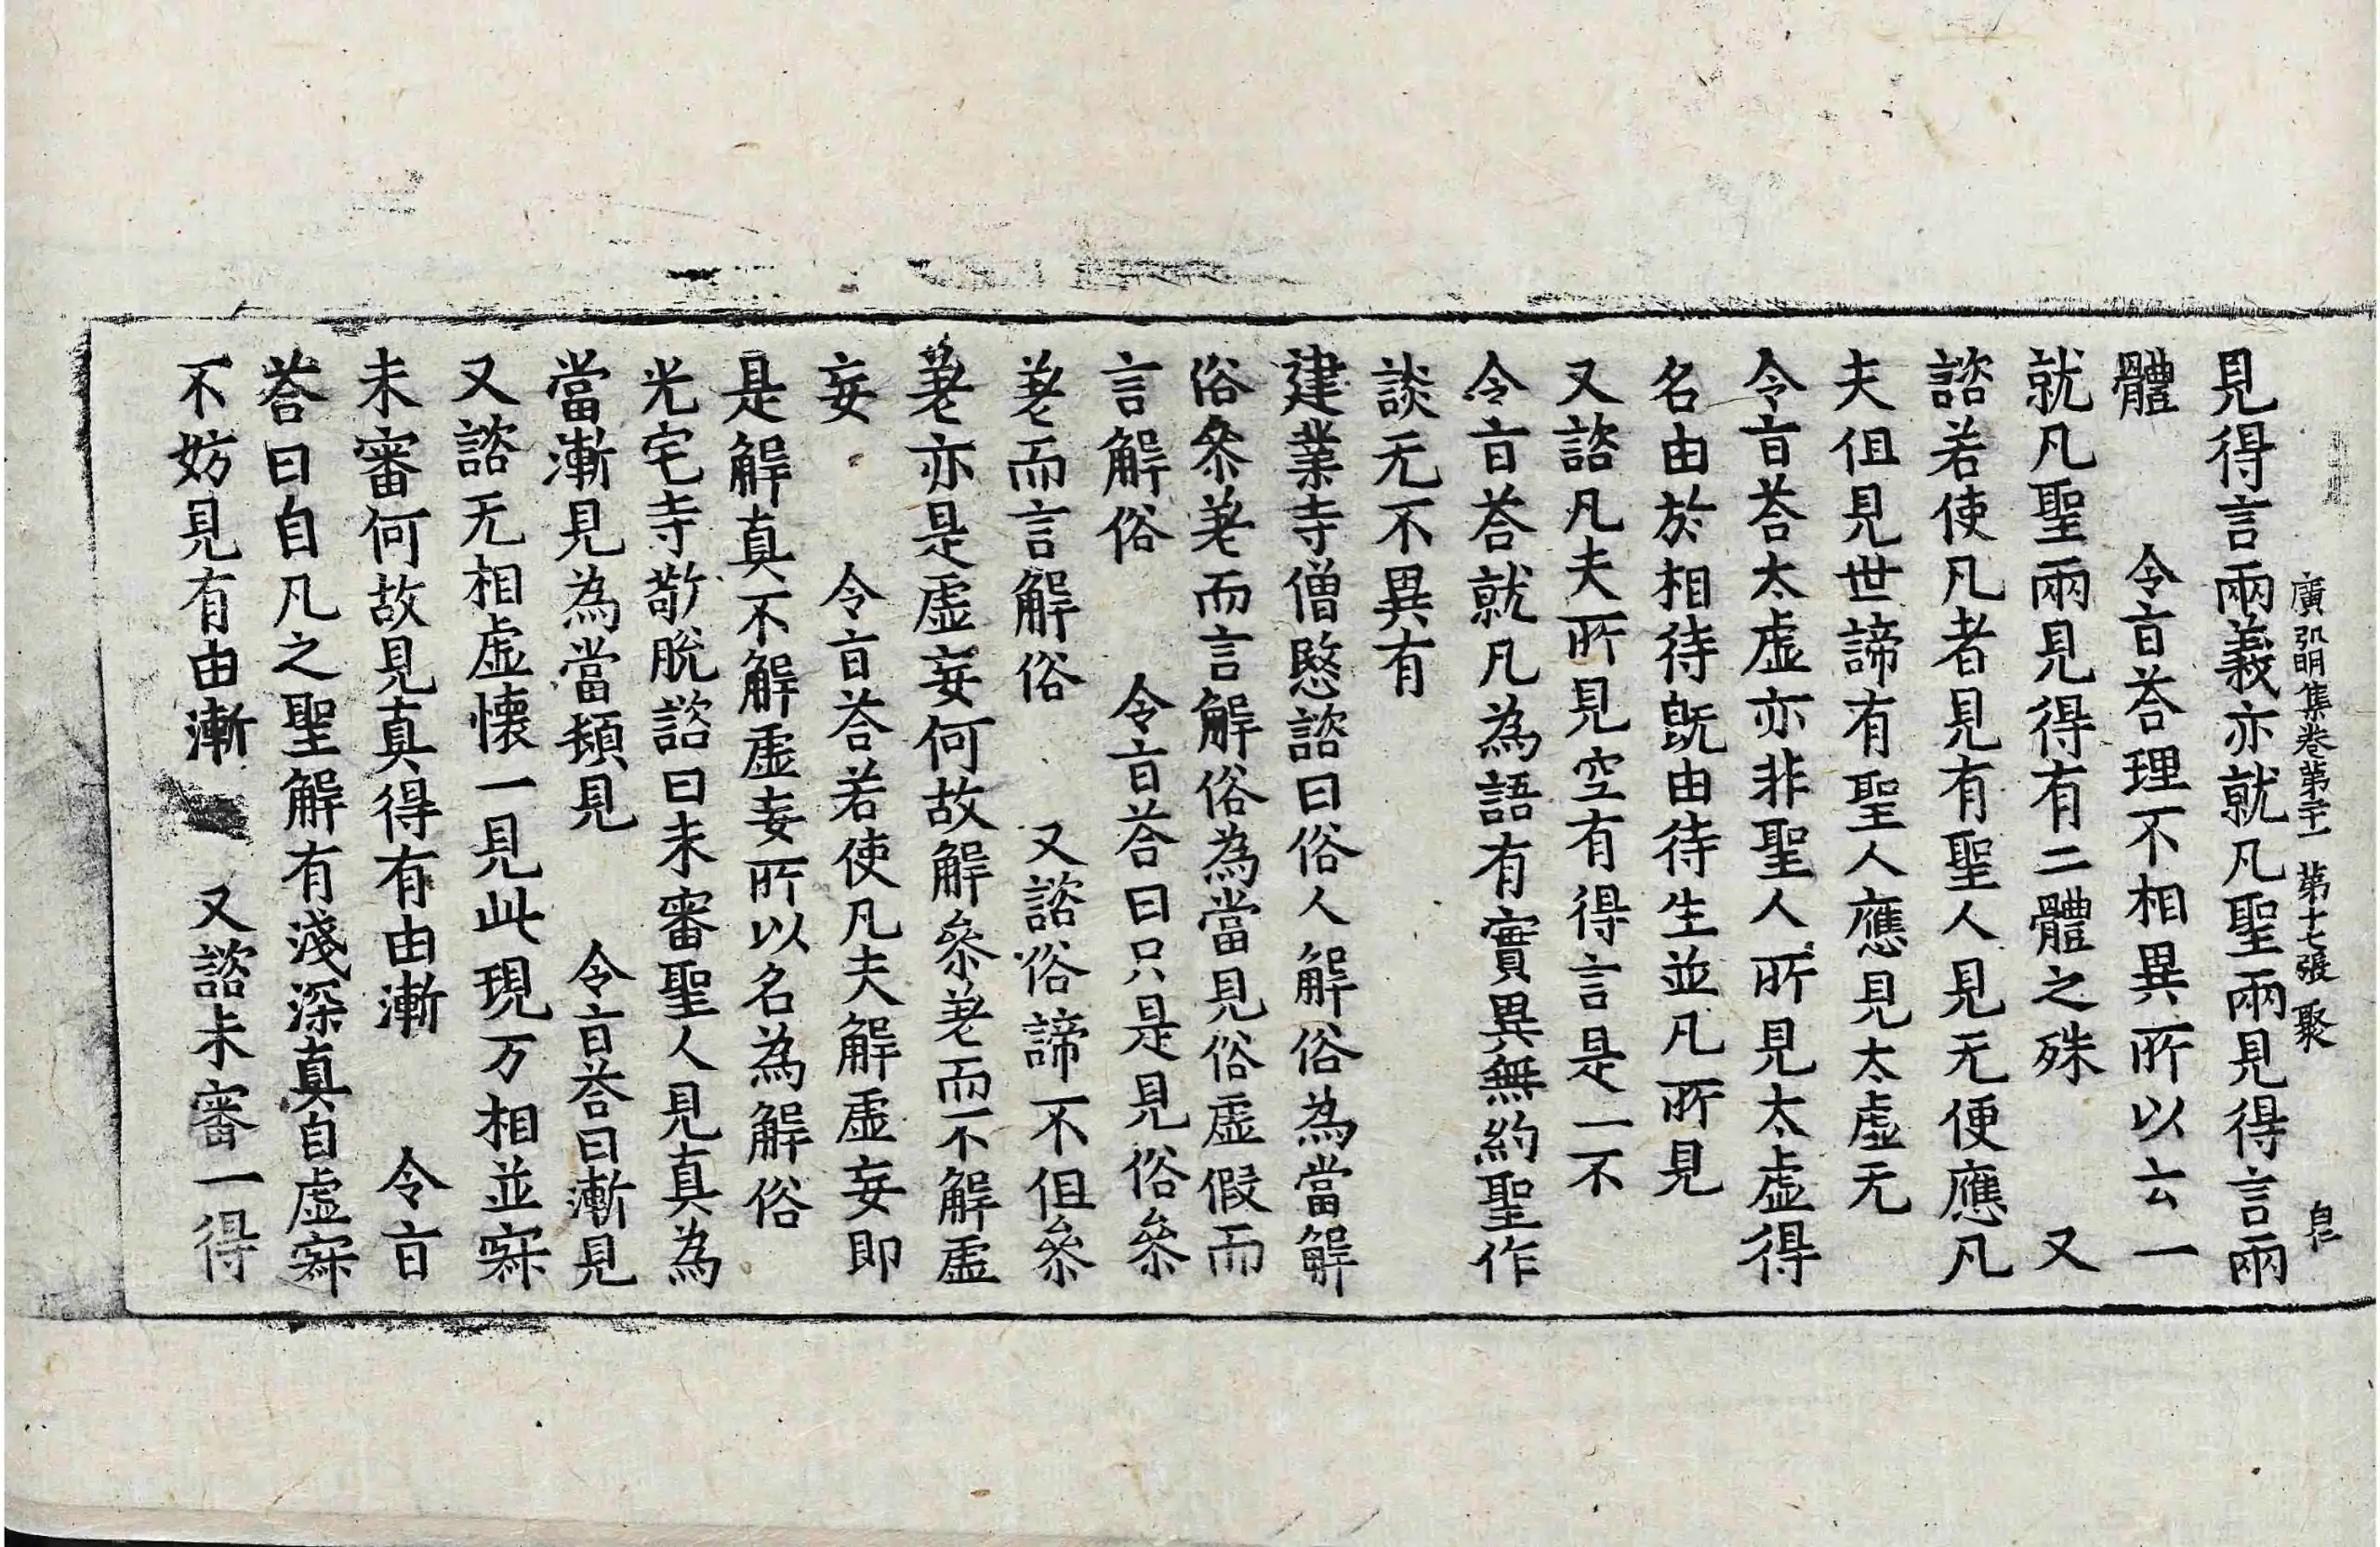 廣弘明集卷第二十一 第十七張 聚
見得言兩義亦就凡聖兩見得言兩
體 令旨荅理不相異所以云一
就凡聖兩見得有二體之殊 又
諮若使凡者見有聖人見无便應凡
夫但見世諦有聖人應見太虛无
令旨荅太虛亦非聖人所見太虛得
名由於相待旣由待生並凡所見
又諮凡夫所見空有得言是一不
令旨荅就凡為語有實異無約聖作
談无不異有
建業寺僧愍諮曰俗人解俗為當解
俗參差而言解俗為當見俗虛假而
言解俗 令旨荅曰只是見俗參
差而言解俗 又諮俗諦不但參
差亦是虛妄何故解參差而不解虛
妄 令旨荅若使凡夫解虛妄即
是解真不解虛妄所以名為解俗
光宅寺敬脫諮曰未審聖人見真為
當漸見為當頓見 令旨荅曰漸見
又諮无相虛懷一見此現万相並寂
未審何故見真得有由漸 令旨
荅曰自凡之聖解有淺深真自虛寂
不妨見有由漸 又諮未審一得